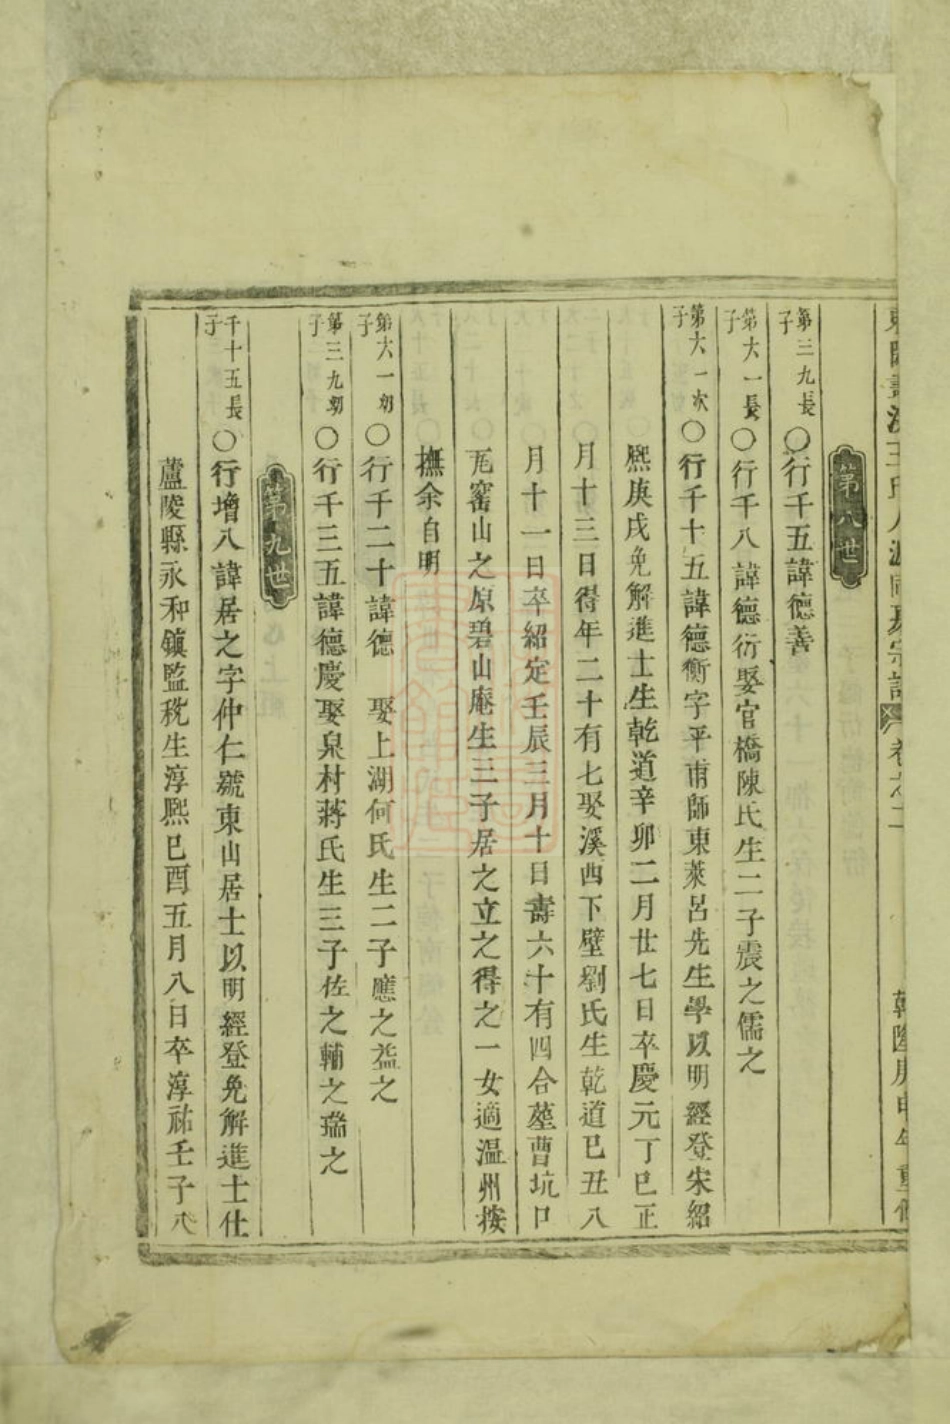 王氏八源同系宗譜 卷之二 乾隆庚申年重修
第八世
第三九長子〇行千五諱德善
第六一長子〇行千八諱德衍娶官橋陳氏生二子震之儒之
第六一次子〇行千十五諱德衡字平甫師東萊呂先生學以明經登宋紹
熈庚戌免解進士生乾道辛卯二月廿七日卒慶元丁巳正
月十三日得年二十有七娶溪西下壁劉氏生乾道己丑八
月十一日卒紹定壬辰三月十日壽六十有四合塟曹坑口
瓦窰山之原碧山庵生三子居之立之得之一女適温州按
撫余自明
第六一幼子〇行千二十諱德 娶上湖何氏生二子應之益之
第三九幼子〇行千三五諱德慶娶泉村蔣氏生三子佐之輔之瑞之
第九世
千十五長子〇行增八諱居之字仲仁號東山居士以明經登免解進士仕
廬陵縣永和鎮監稅生淳熈己酉五月八日卒淳祐壬子八